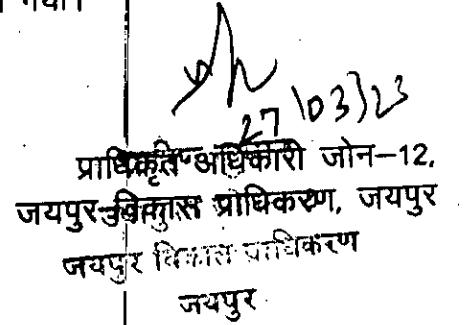 गया।
27/03/23
प्राधिकृत अधिकारी जोन-12,
जयपुर विकास प्राधिकरण, जयपुर
जयपुर विकास प्राधिकरण
जयपुर